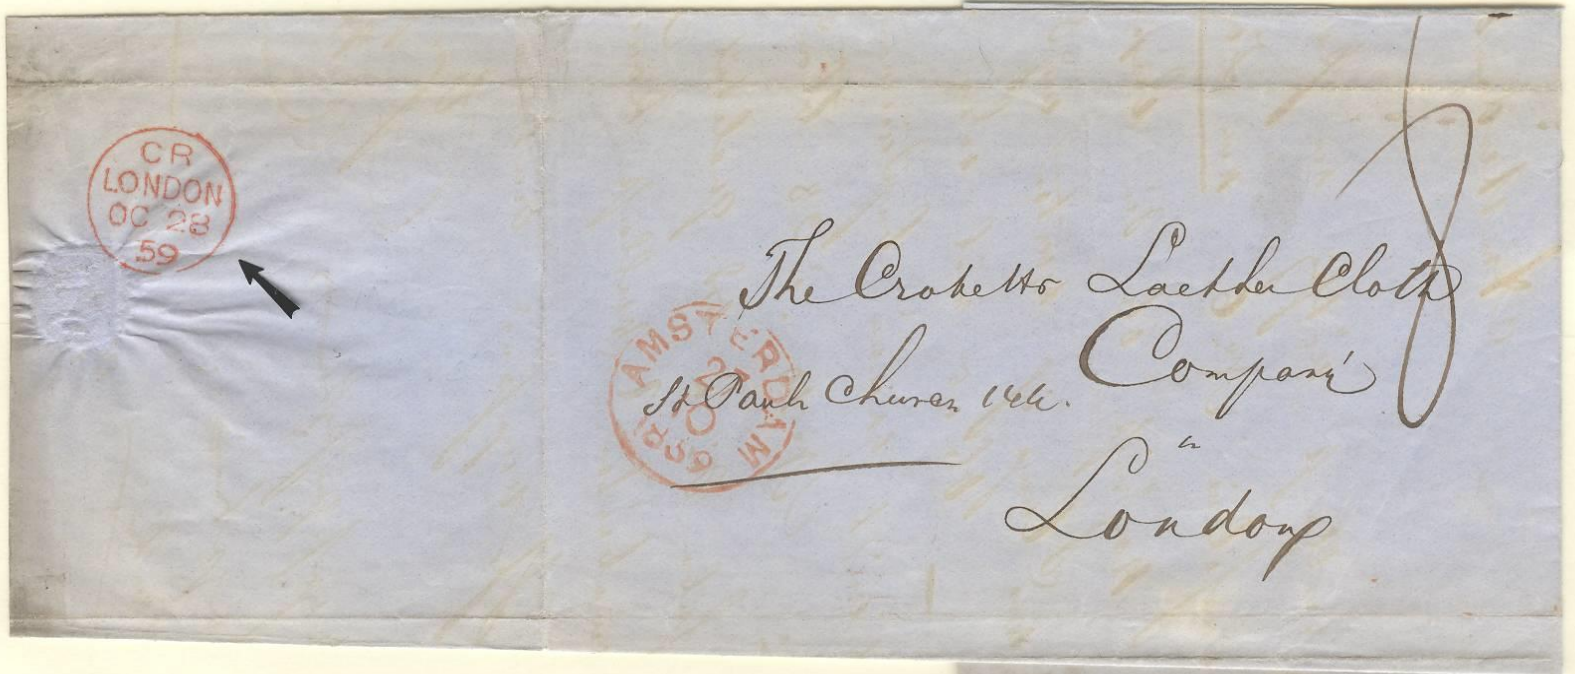 CR
LONDON
OC 28
59
AMSTERDAM
27
8
The Croketts Laether Cloth
Company
St Pauls Church
in
London